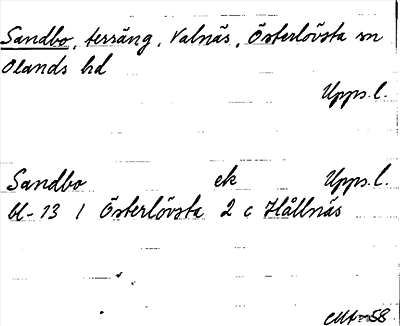 Sandbo, terräng, Valnäs, Österlövsta sn
Olands hd
Upps.l.
Sandbo ek Upps.l.
bl-13 1 Österlövsta 2 c Hållnäs
-58